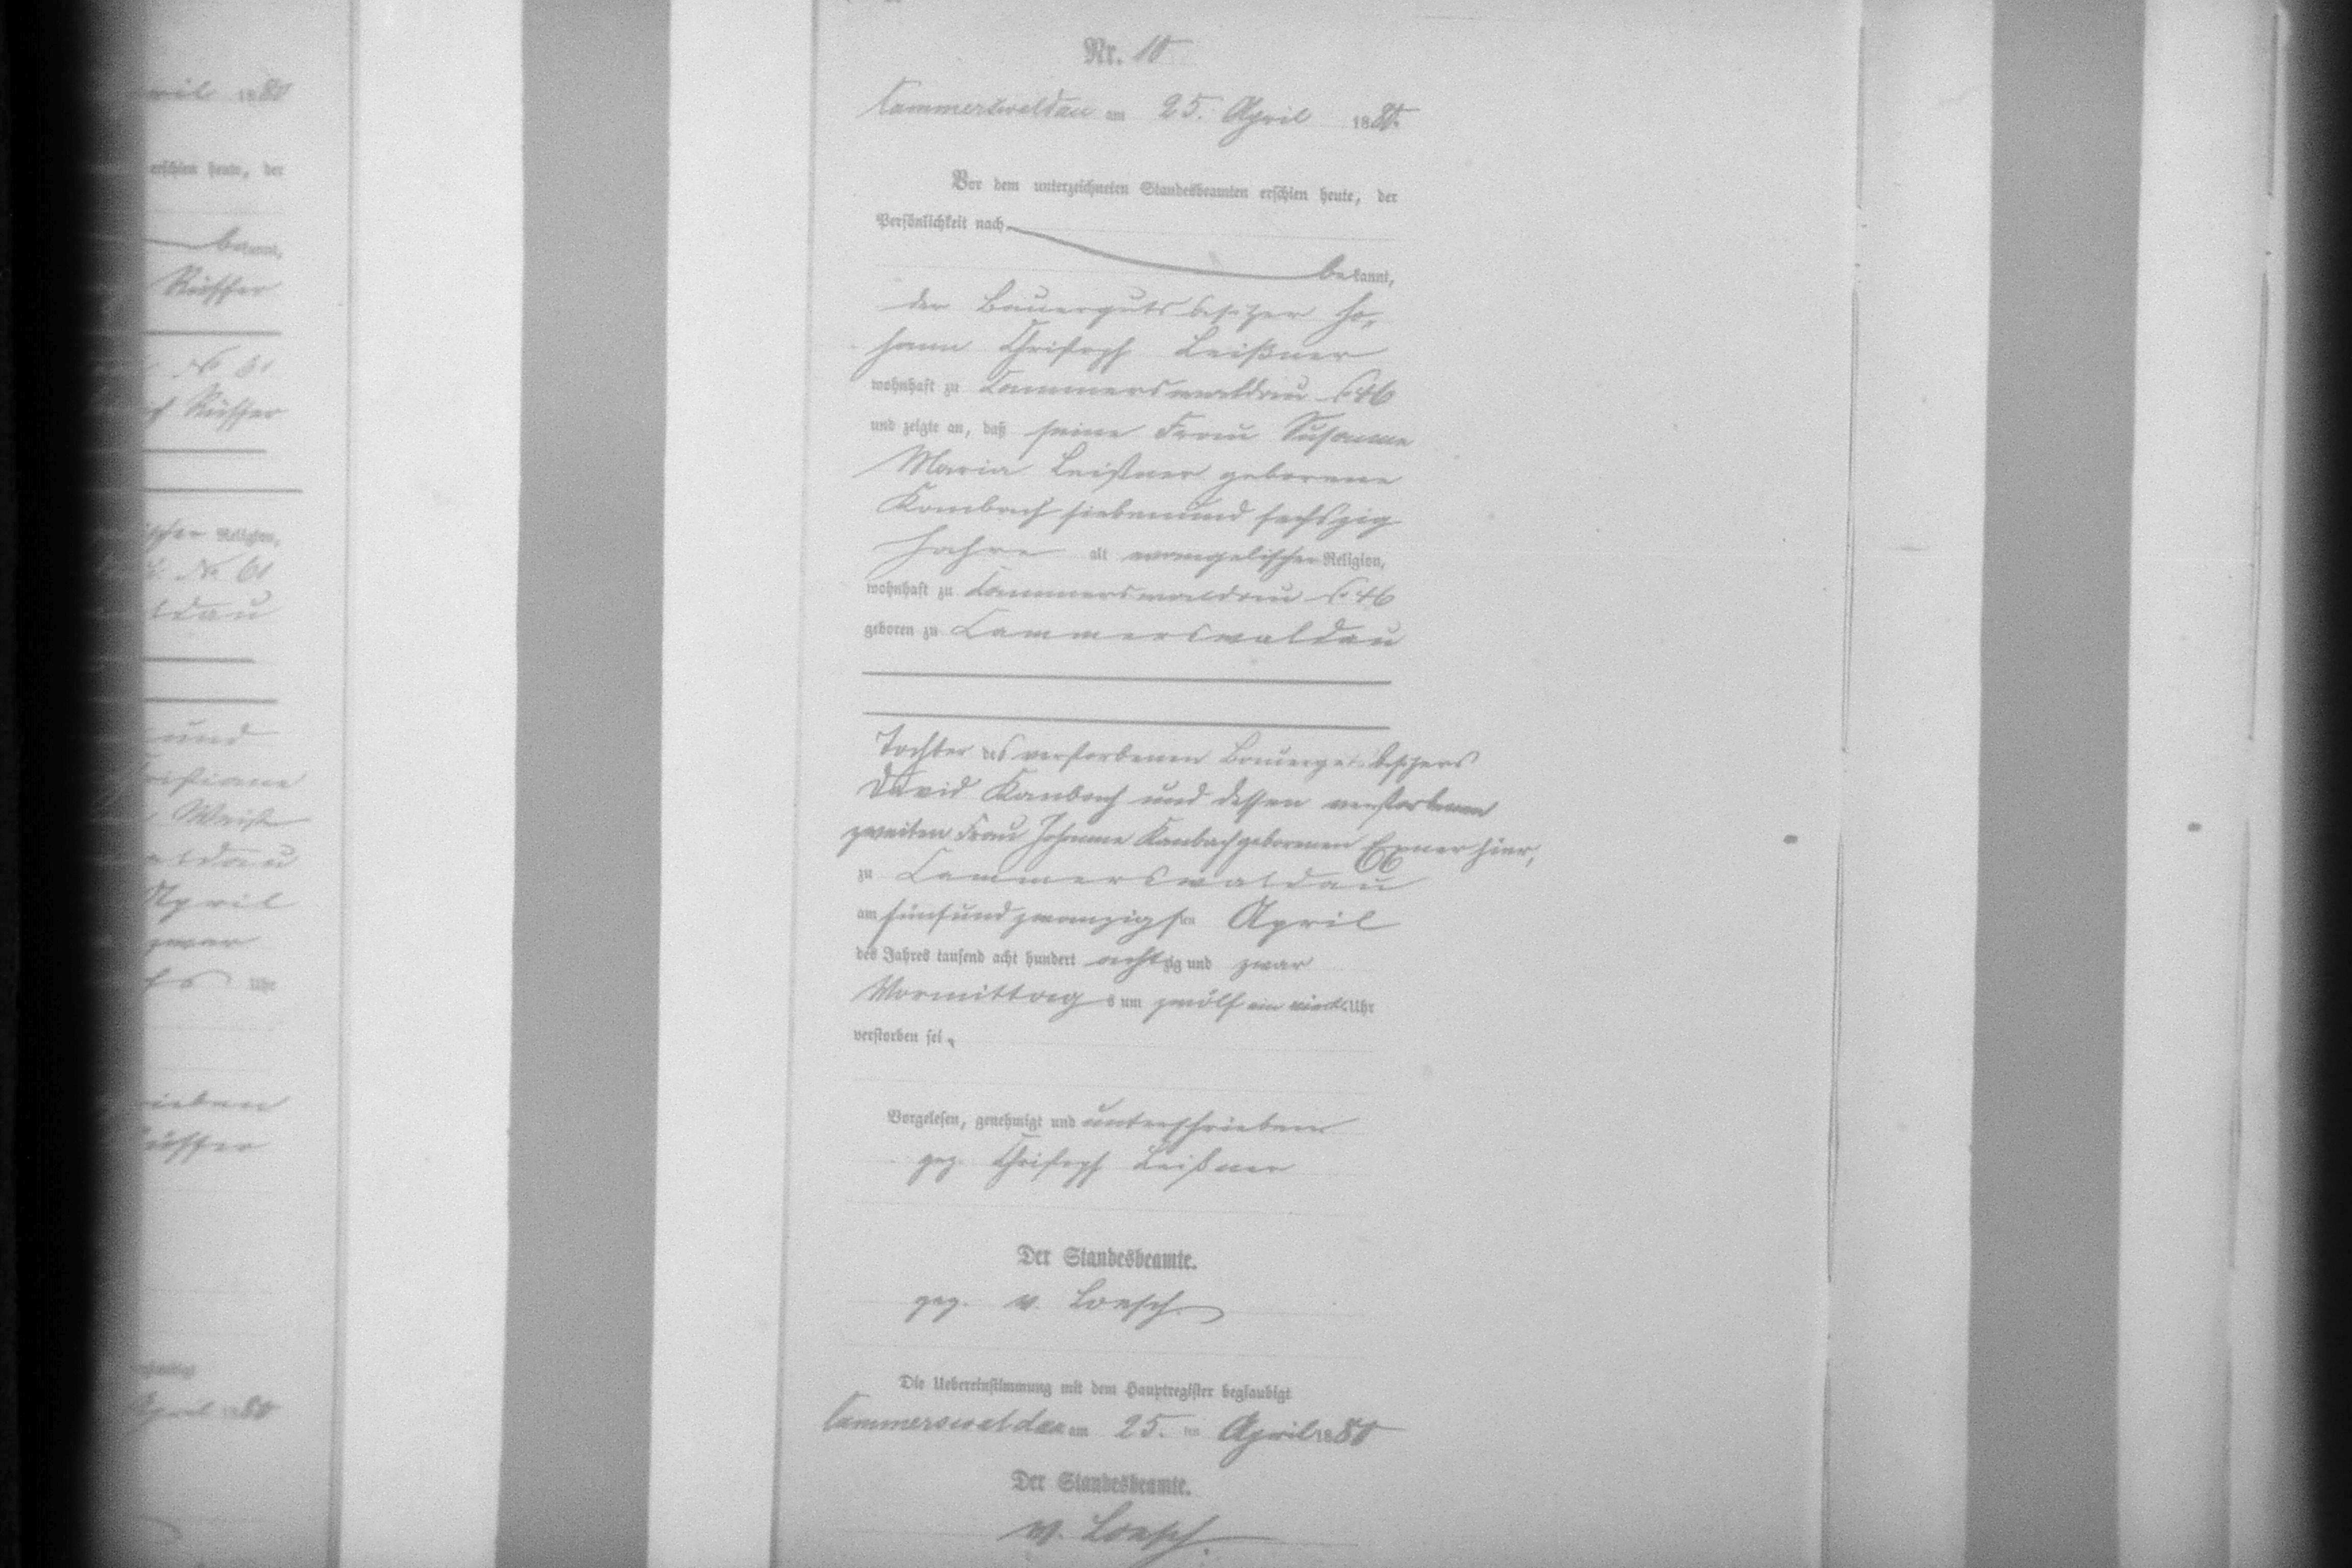 Nr. 10
Cammerswaldau am 25. April 1880.
Vor dem unterzeichneten Standesbeamten erschien heute, der
Persönlichkeit nach
bekannt,
der Bauergutsbesitzer Jo-
hann Christoph Leißner
wohnhaft zu Cammerswaldau 46
und zeigte an, daß seine Frau Susanne
Maria Leißner geborene
Kambach siebenund sechszig
Jahre alt evangelischer Religion,
wohnhaft zu Cammerswaldau 46
geboren zu Cammerswaldau
Tochter des verstorbenen Bauergutsbesitzers
David Kambach und dessen verstorbenen
zweiten Frau Johanne Kambach geborenen Exner hier,
zu Cammerswaldau
am fünfundzwanzigsten April
des Jahres tausend acht hundert achtzig und zwar
Vormittags um zwölf ein viertel Uhr
verstorben sei.
Vorgelesen, genehmigt und unterschrieben
gez. Christoph Leißner
Der Standesbeamte.
gez. v. Loesch
Die Uebereinstimmung mit dem Hauptregister beglaubigt
Cammerswaldau am 25. ten April 1880
Der Standesbeamte.
v. Loesch.
April 1880
erschien heute, der
bekannt,
Rüffer
No 61
Rüffer
Religion,
No 61
und
April
zwar
Uhr
April 1880